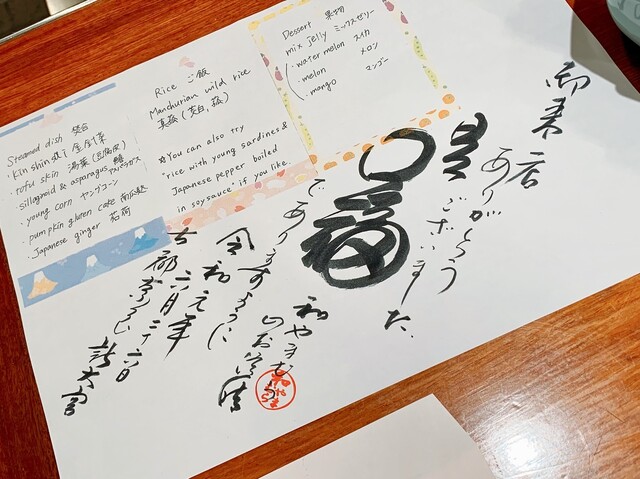 Steamed dish 焚合
・Kin shin sai 金針菜
・tofu skin 湯葉(豆腐皮)
・sillaginid & asparagus 鱚 アスパラガス
・young corn ヤングコーン
・pumpkin gluten cake 南瓜麩
・Japanese ginger 茗荷
Rice ご飯
Manchurian wild rice
真菰(茭白、菰)
☆You can also try
"rice with young sardines &
Japanese pepper boiled
in soy sauce" if you like.
Dessert 果物
mix jelly ミックスゼリー
・water melon スイカ
・melon メロン
・mango マンゴー
御来店
ありがとう
ございました
福
でありますように
令和元年
六月二十六日
古都
和やまむら